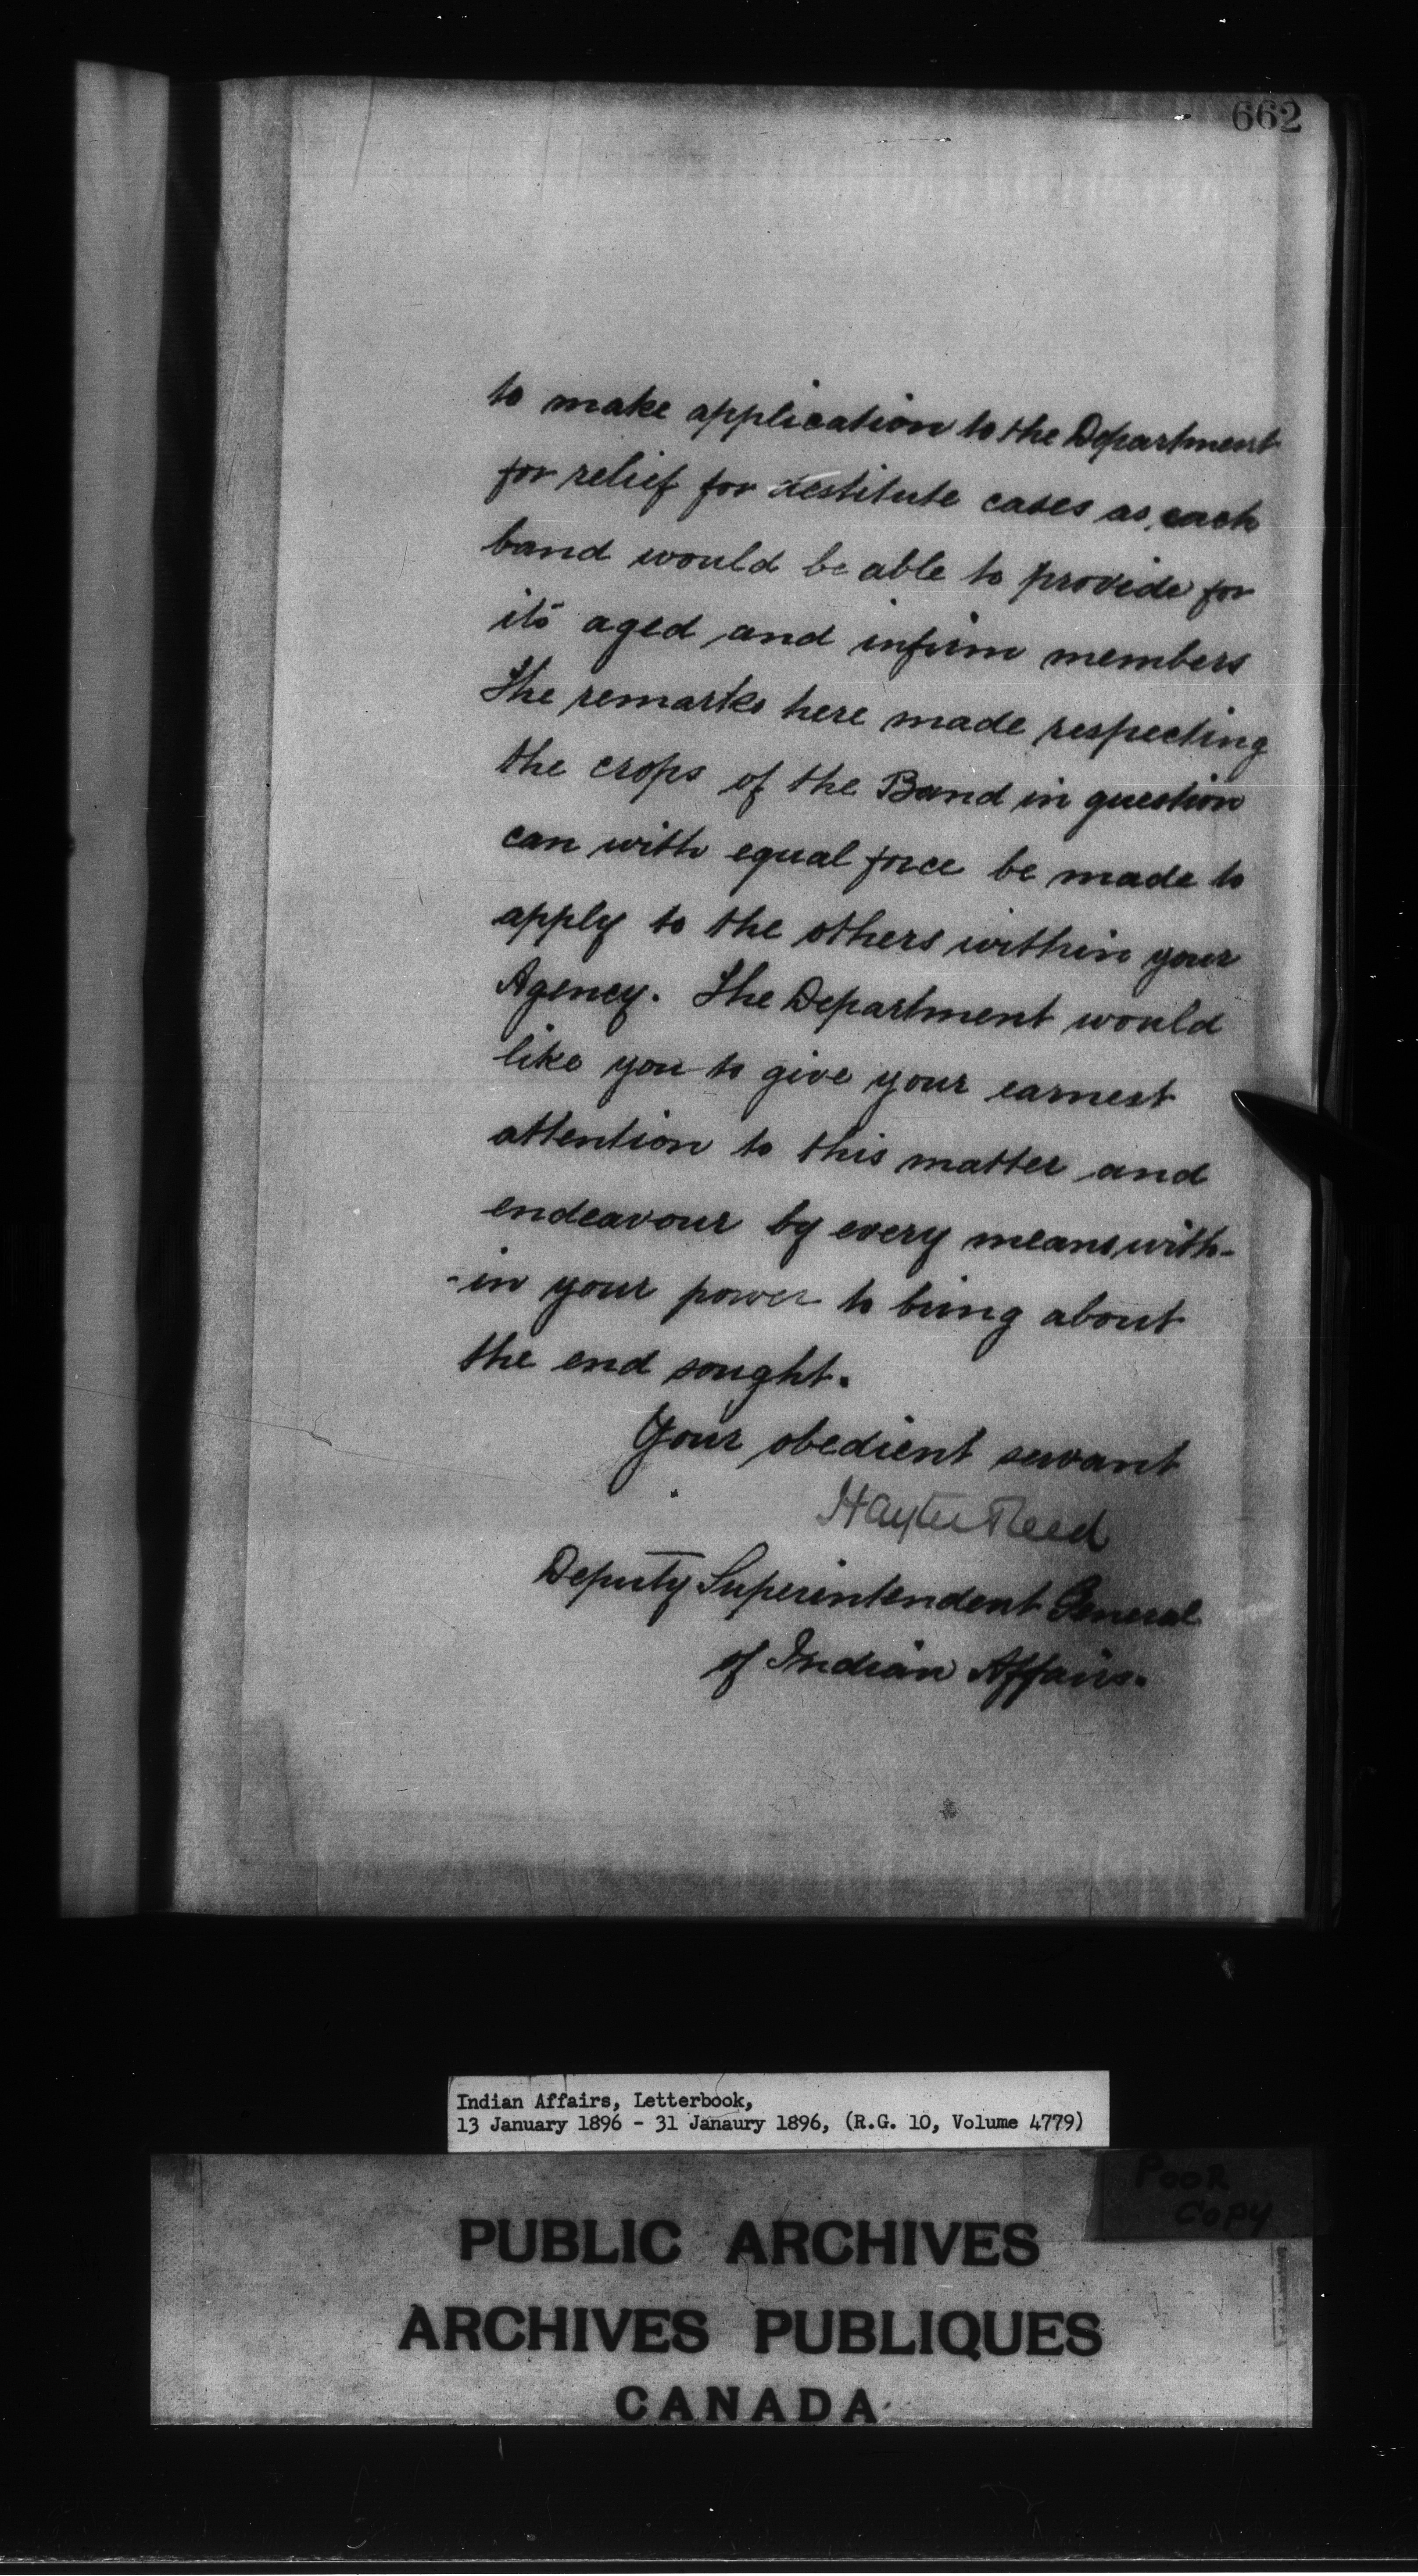 662
to make application to the Department
for relief for destitute cases as each
band would be able to provide for
its aged and infirm members
The remarks here made respecting
the crops of the Band in question
can with equal force be made to
apply to the others within your
Agency. The Department would
like you to give your earnest
attention to this matter and
endeavour by every means with-
-in your power to bring about
the end sought.
Your obedient servant
Hayter Reed
Deputy Superintendent General
of Indian Affairs.
Indian Affairs, Letterbook,
13 January 1896 - 31 Janaury 1896, (R.G. 10, Volume 4779)
POOR
COPY
PUBLIC ARCHIVES
ARCHIVES PUBLIQUES
CANADA